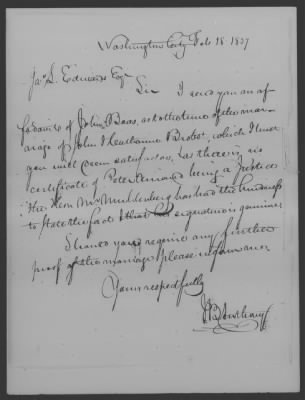 Washington City Feb 18 1837
Jas L. Edwards Esqr
Sir I send you an af
fadavit of John Baas, as to the time of the mar-
riage of John & Catharine Probst, which I trust
you will deem satisfactory, as there is no
certificate of Peter being a Justice
The Hon Mr Muhlenberg has had the kindness
to state the fact & that his signature is genuine
Should you require any further
proof of the marriage please inform me
Yours respectfully